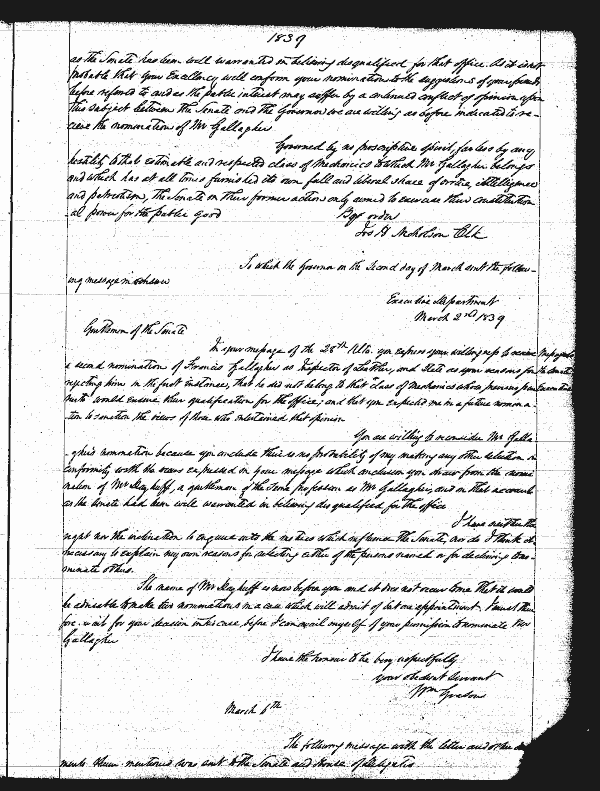 1839
as the Senate has been well warranted in believing disqualified for that office. As it is not
probable that your Excellency will conform your nomination to the suggestions of your
before referred to and as the public interest may suffer by a continued conflict of opinion upon
this subject between the Senate and the Governor we are willing as before indicated to re-
ceive the nomination of Mr Gallagher
Governed by no proscriptive spirit, far less by any
hostility to that estimable and respected class of Mechanics to which Mr Gallagher belongs
and which has at all times furnished its own full and liberal share of service, intelligence
and patriotism, the Senate in their former action only aimed to exercise their constitution-
al power for the public good
By order
Jos H Nicholson Clk
To which the Governor on the Second day of March sent the follow-
ing message in
Executive Department
March 2nd 1839
Gentlemen of the Senate
In your message of the 28th Ulto. you express your willingness to receive
a second nomination of Francis Gallagher as Inspector of Leather, and State as your reasons for
rejecting him in the first instance, that he did not belong to that class of mechanics whose
would ensure their qualification for the office; and that you expected me in a future nomina-
tion to the views of those who entertained that opinion
You are willing to reconsider Mr Galla-
-gher's nomination because you conclude there is no probability of my making any other selection in
conformity with the views expressed in your message which conclusion you draw from the nomi-
nation of Mr a gentleman of the same profession as Mr Gallagher, and on that account
as the Senate had been well warranted in believing disqualified for the office
I have neither the
right nor the inclination to enquire into the motives which influenced the Senate, nor do I think it
necessary to explain my own reasons for selecting either of the persons named or for declining to no-
minate others.
The name of Mr is now before you and it does not occur to me that it would
be advisable to make two nominations in a case which will admit of but one appointment. I must there
fore wait for your decision in his case, before I can avail myself of your permission to nominate Mr
Gallagher
I have the honour to be very respectfully
your obedient servant
Wm Grason
March 6th
The following message with the letter and other do
ments therein mentioned was sent to the Senate and House of Delegates